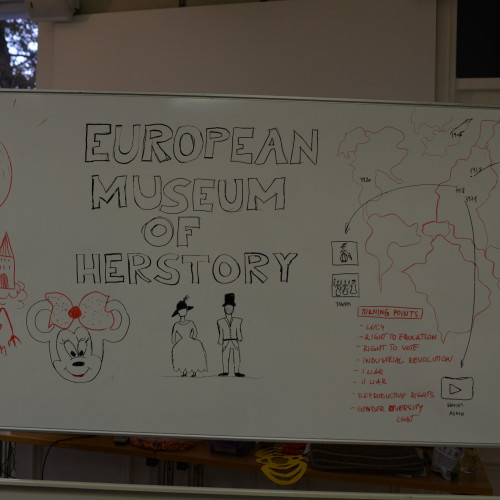 EUROPEAN
MUSEUM
OF
HERSTORY
TURNING POINTS
- LUCY
- RIGHT TO EDUCATION
- RIGHT TO VOTE
- INDUSTRIAL REVOLUTION
- I WAR
- II WAR
- REPRODUCTIVE RIGHTS
- GENDER DIVERSITY
LGBT